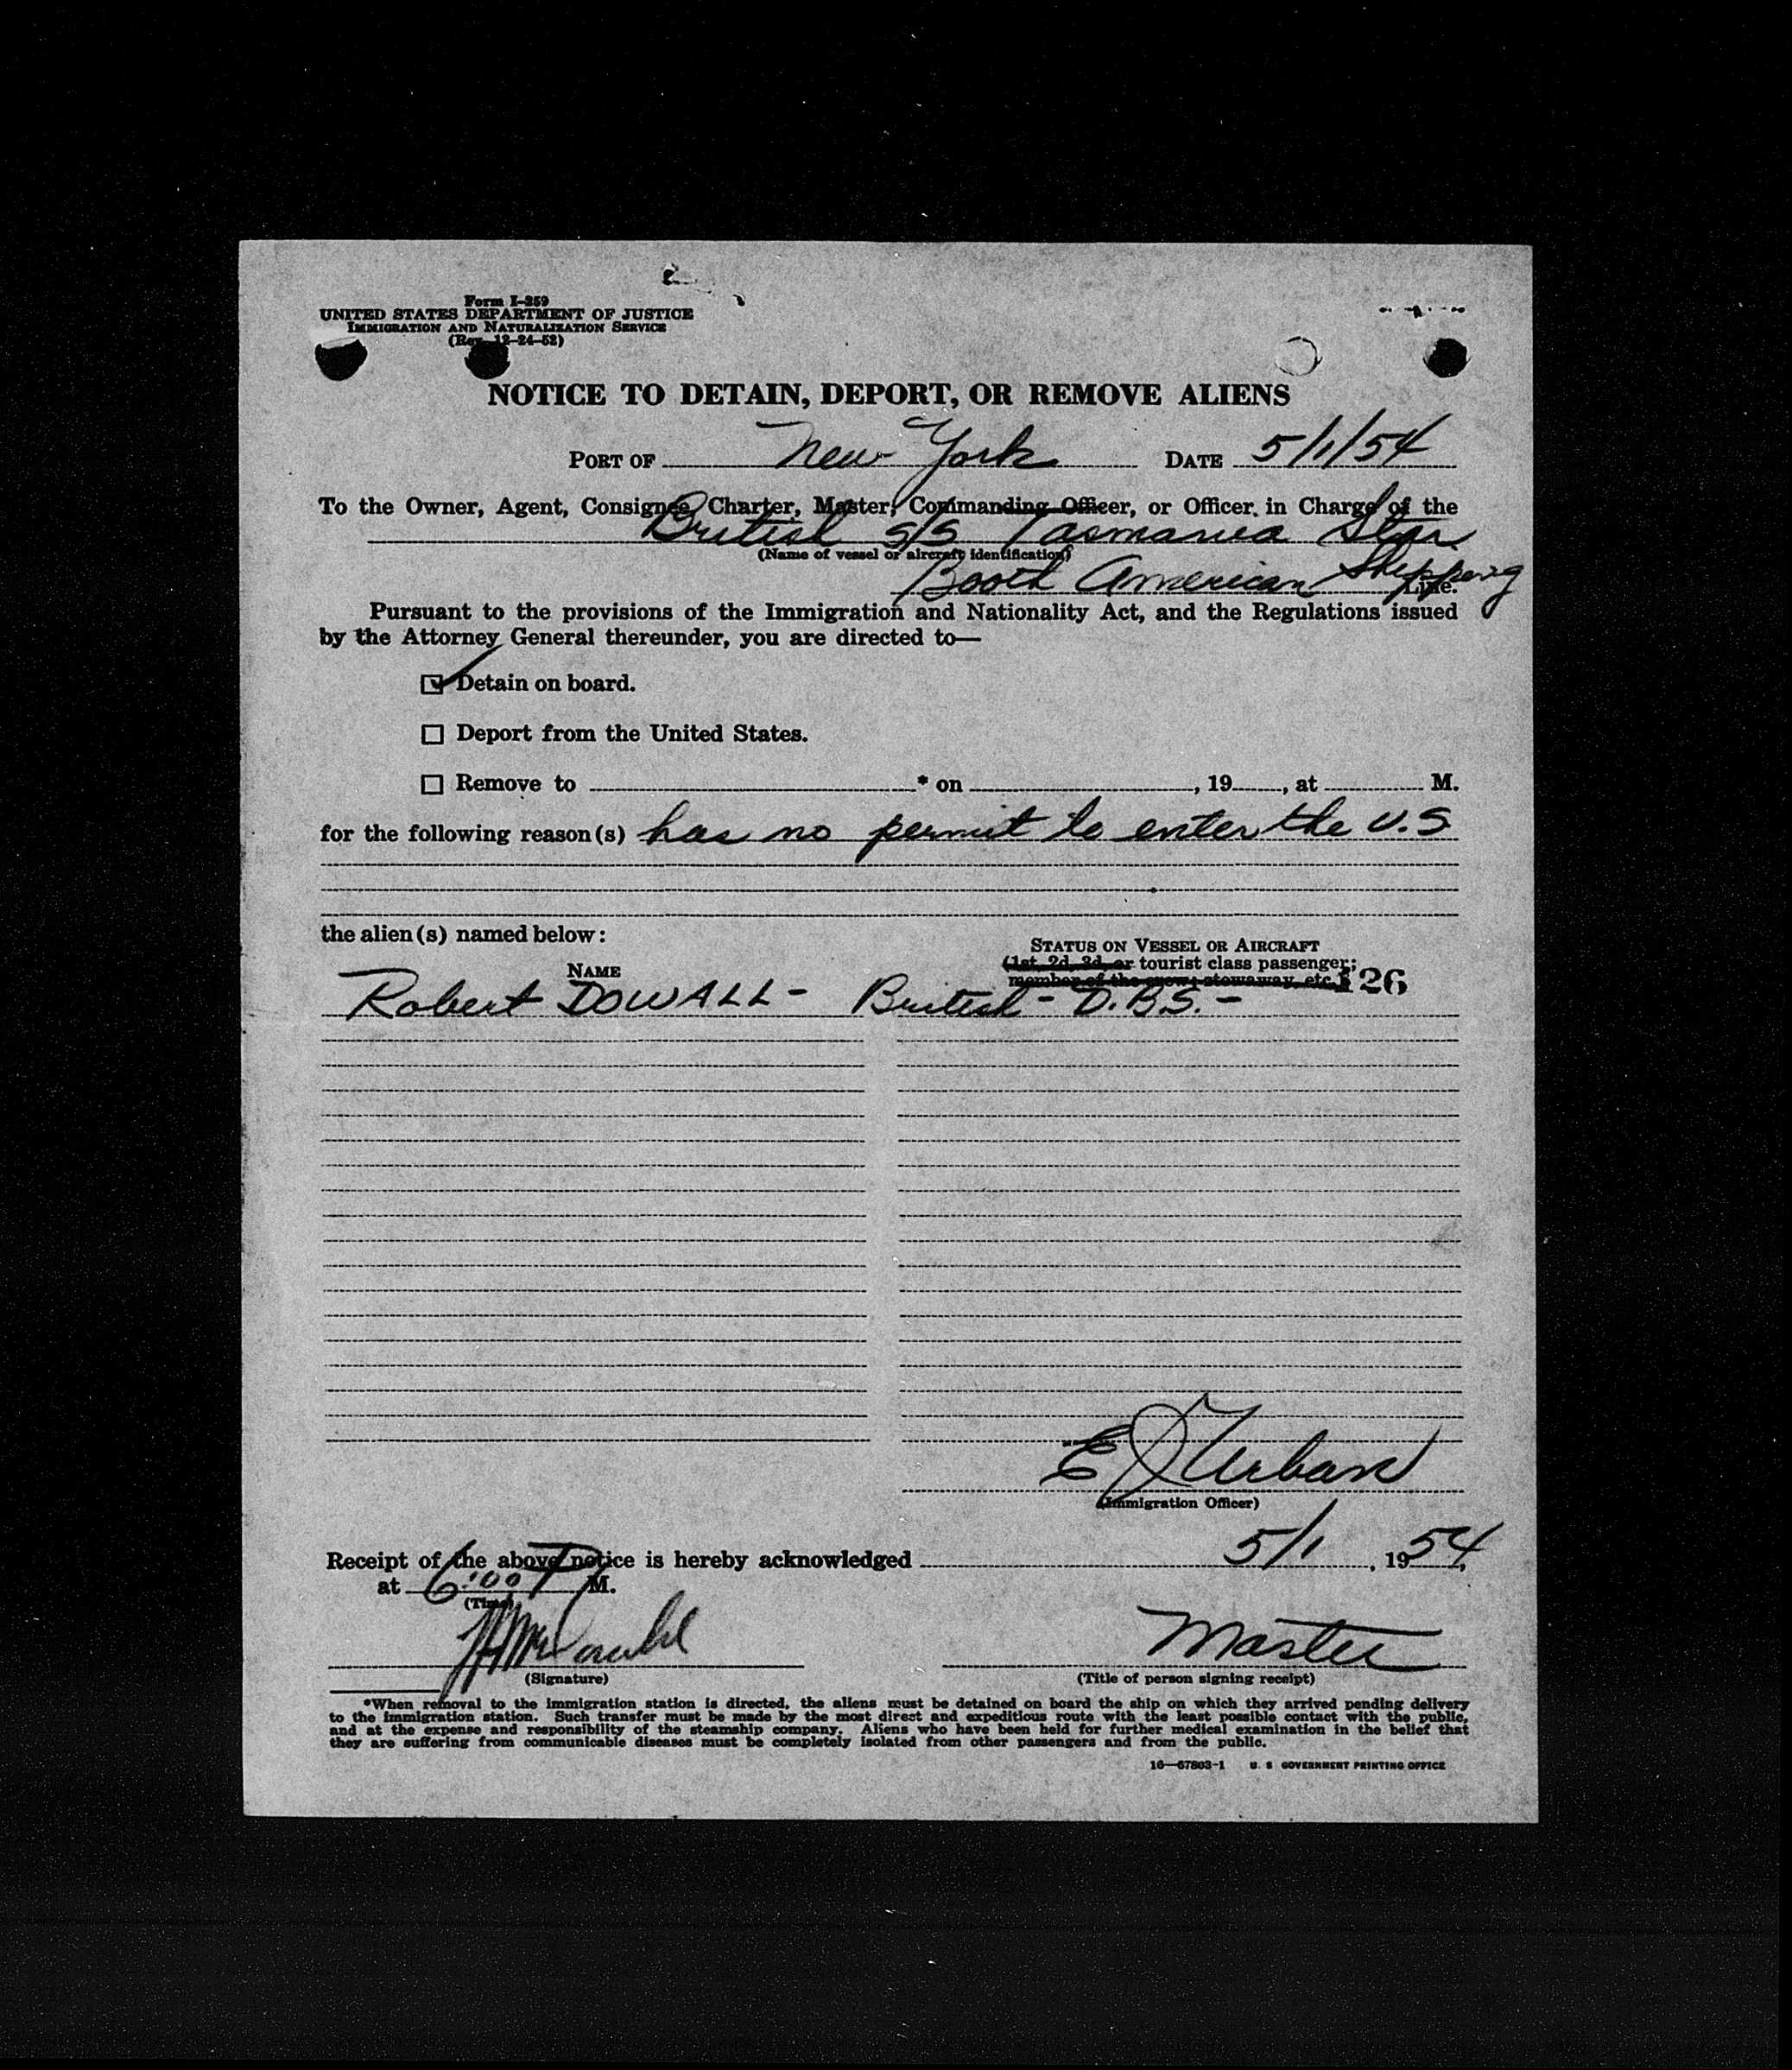 Form I-259
UNITED STATES DEPARTMENT OF JUSTICE
IMMIGRATION AND NATURALIZATION SERVICE
(Rev. 12-24-52)
NOTICE TO DETAIN, DEPORT, OR REMOVE ALIENS
PORT OF New York DATE 5/1/54
To the Owner, Agent, Consignee, Charter, Master, Commanding Officer, or Officer in Charge of the
British S/S Tasmania Star
(Name of vessel or aircraft identification)
Booth American Shipping Line.
Pursuant to the provisions of the Immigration and Nationality Act, and the Regulations issued
by the Attorney General thereunder, you are directed to—
☑ Detain on board.
☐ Deport from the United States.
☐ Remove to * on , 19 , at M.
for the following reason(s) has no permit to enter the U.S
the alien(s) named below:
STATUS ON VESSEL OR AIRCRAFT
(1st, 2d, 3d, or tourist class passenger;
member of the crew; stowaway, etc.)
126
NAME
Robert DOWALL - British - D.B.S. -
E J Urban
(Immigration Officer)
Receipt of the above notice is hereby acknowledged 5/1, 1954,
at 6:00 P M.
(Time)
Master
(Signature) (Title of person signing receipt)
*When removal to the immigration station is directed, the aliens must be detained on board the ship on which they arrived pending delivery
to the immigration station. Such transfer must be made by the most direct and expeditious route with the least possible contact with the public,
and at the expense and responsibility of the steamship company. Aliens who have been held for further medical examination in the belief that
they are suffering from communicable diseases must be completely isolated from other passengers and from the public.
16—67803-1 U. S. GOVERNMENT PRINTING OFFICE